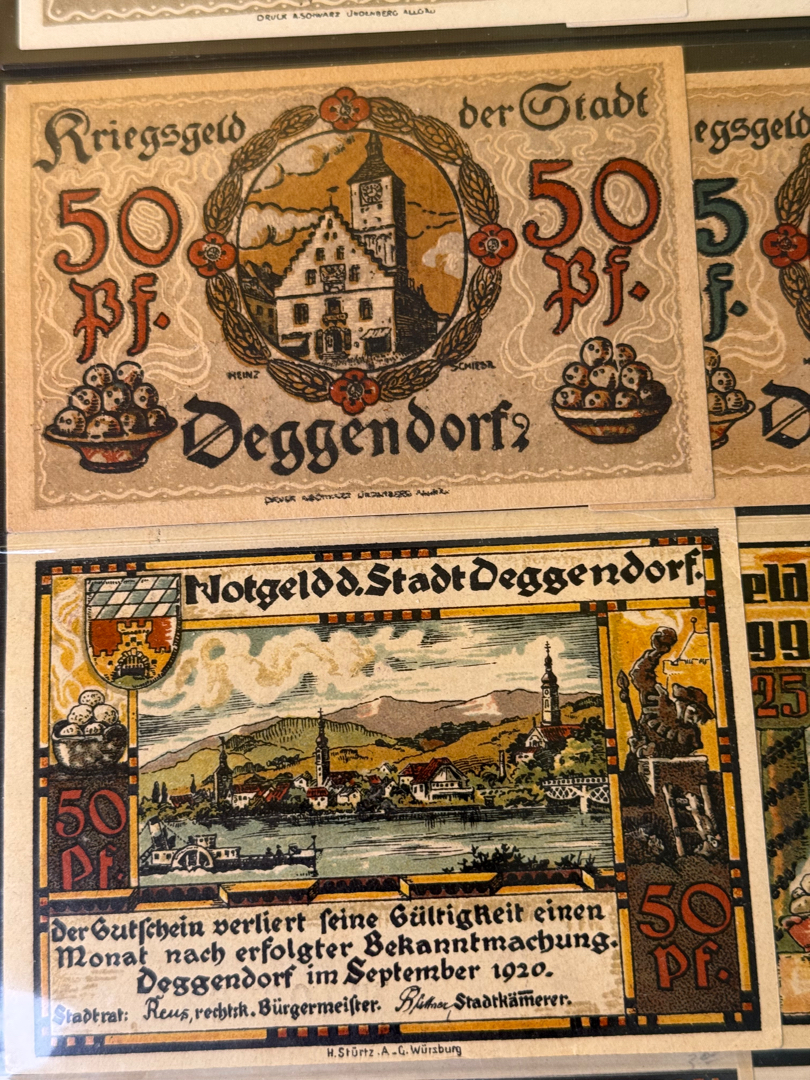 DRUCK
LINDENBERG ALLGÄU
Kriegsgeld der Stadt
50 Pf.
50 Pf.
HEINZ SCHIESTL
Deggendorf
DRUCK
LINDENBERG
egsgeld
5
f.
D
Notgeld d. Stadt Deggendorf.
50 Pf.
50 Pf.
der Gutschein verliert seine Gültigkeit einen
Monat nach erfolgter Bekanntmachung.
Deggendorf im September 1920.
Stadtrat: Reus, rechtsk. Bürgermeister. Stadtkämmerer.
H. Stürtz. A-G. Würzburg
eld
gg
25